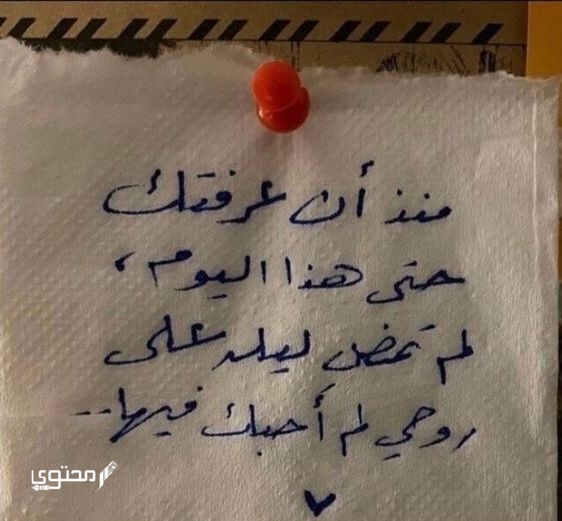 منذ أن عرفتك
حتى هذا اليوم،
لم تمض ليلة على
روحي لم أحبك فيها..
محتوي